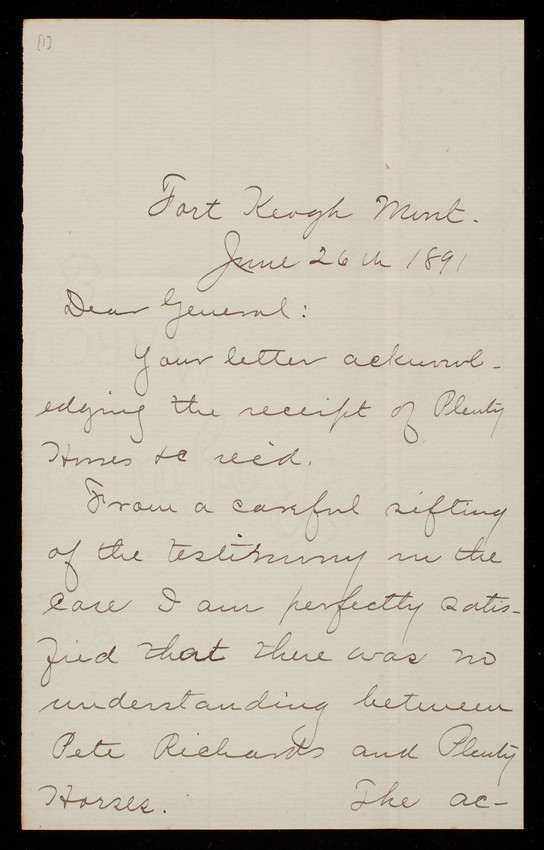 [1]
Fort Keogh Mont.
June 26th 1891
Dear General:
Your letter acknowl-
edging the receipt of Plenty
Horses &c rec'd.
From a careful sifting
of the testimony in the
case I am perfectly satis-
fied that there was no
understanding between
Pete Richards and Plenty
Horses. The ac-